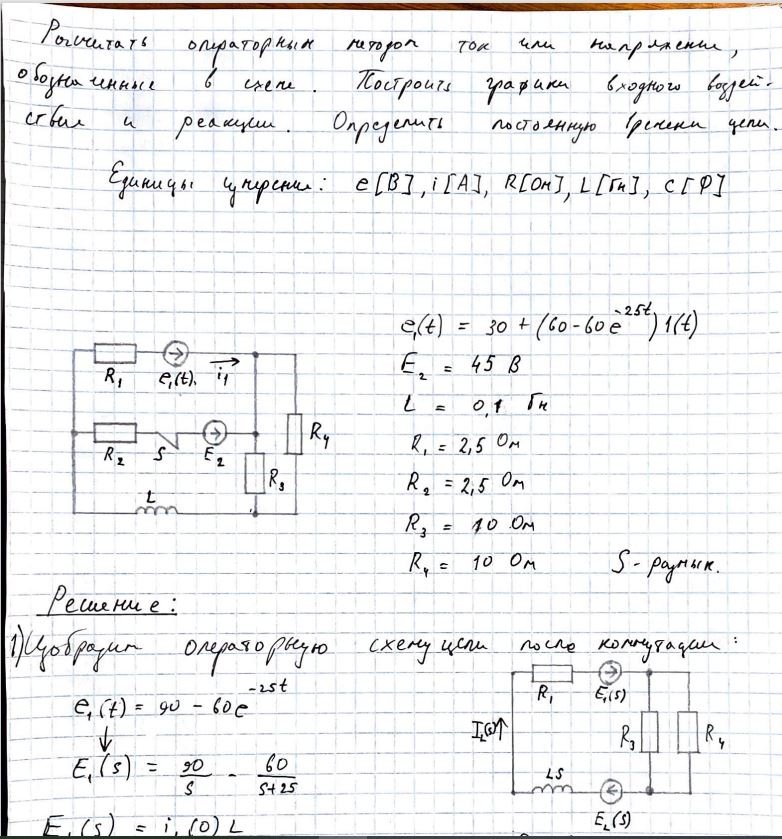 Рассчитать операторным методом ток или напряжение,
обозначенные в схеме. Построить графики входного воздей-
ствия и реакции. Определить постоянную времени цепи.
Единицы измерения: e[В], i[A], R[Ом], L[Гн], C[Ф]
e₁(t) = 30 + (60-60e^{-25t})1(t)
E₂ = 45 В
L = 0,1 Гн
R₁ = 2,5 Ом
R₂ = 2,5 Ом
R₃ = 10 Ом
R₄ = 10 Ом
S - размык.
R₁ e₁(t). i₁
R₂ S E₂ R₄
R₃
L
Решение:
1) Изобразим операторную схему цепи после коммутации:
e₁(t) = 90 - 60e^{-25t}
↓
E₁(s) = 90/s - 60/(s+25)
R₁ E₁(s)
I_L(s)↑ R₃ R₄
LS
E_L(s)
E_L(s) = i_L(0) L